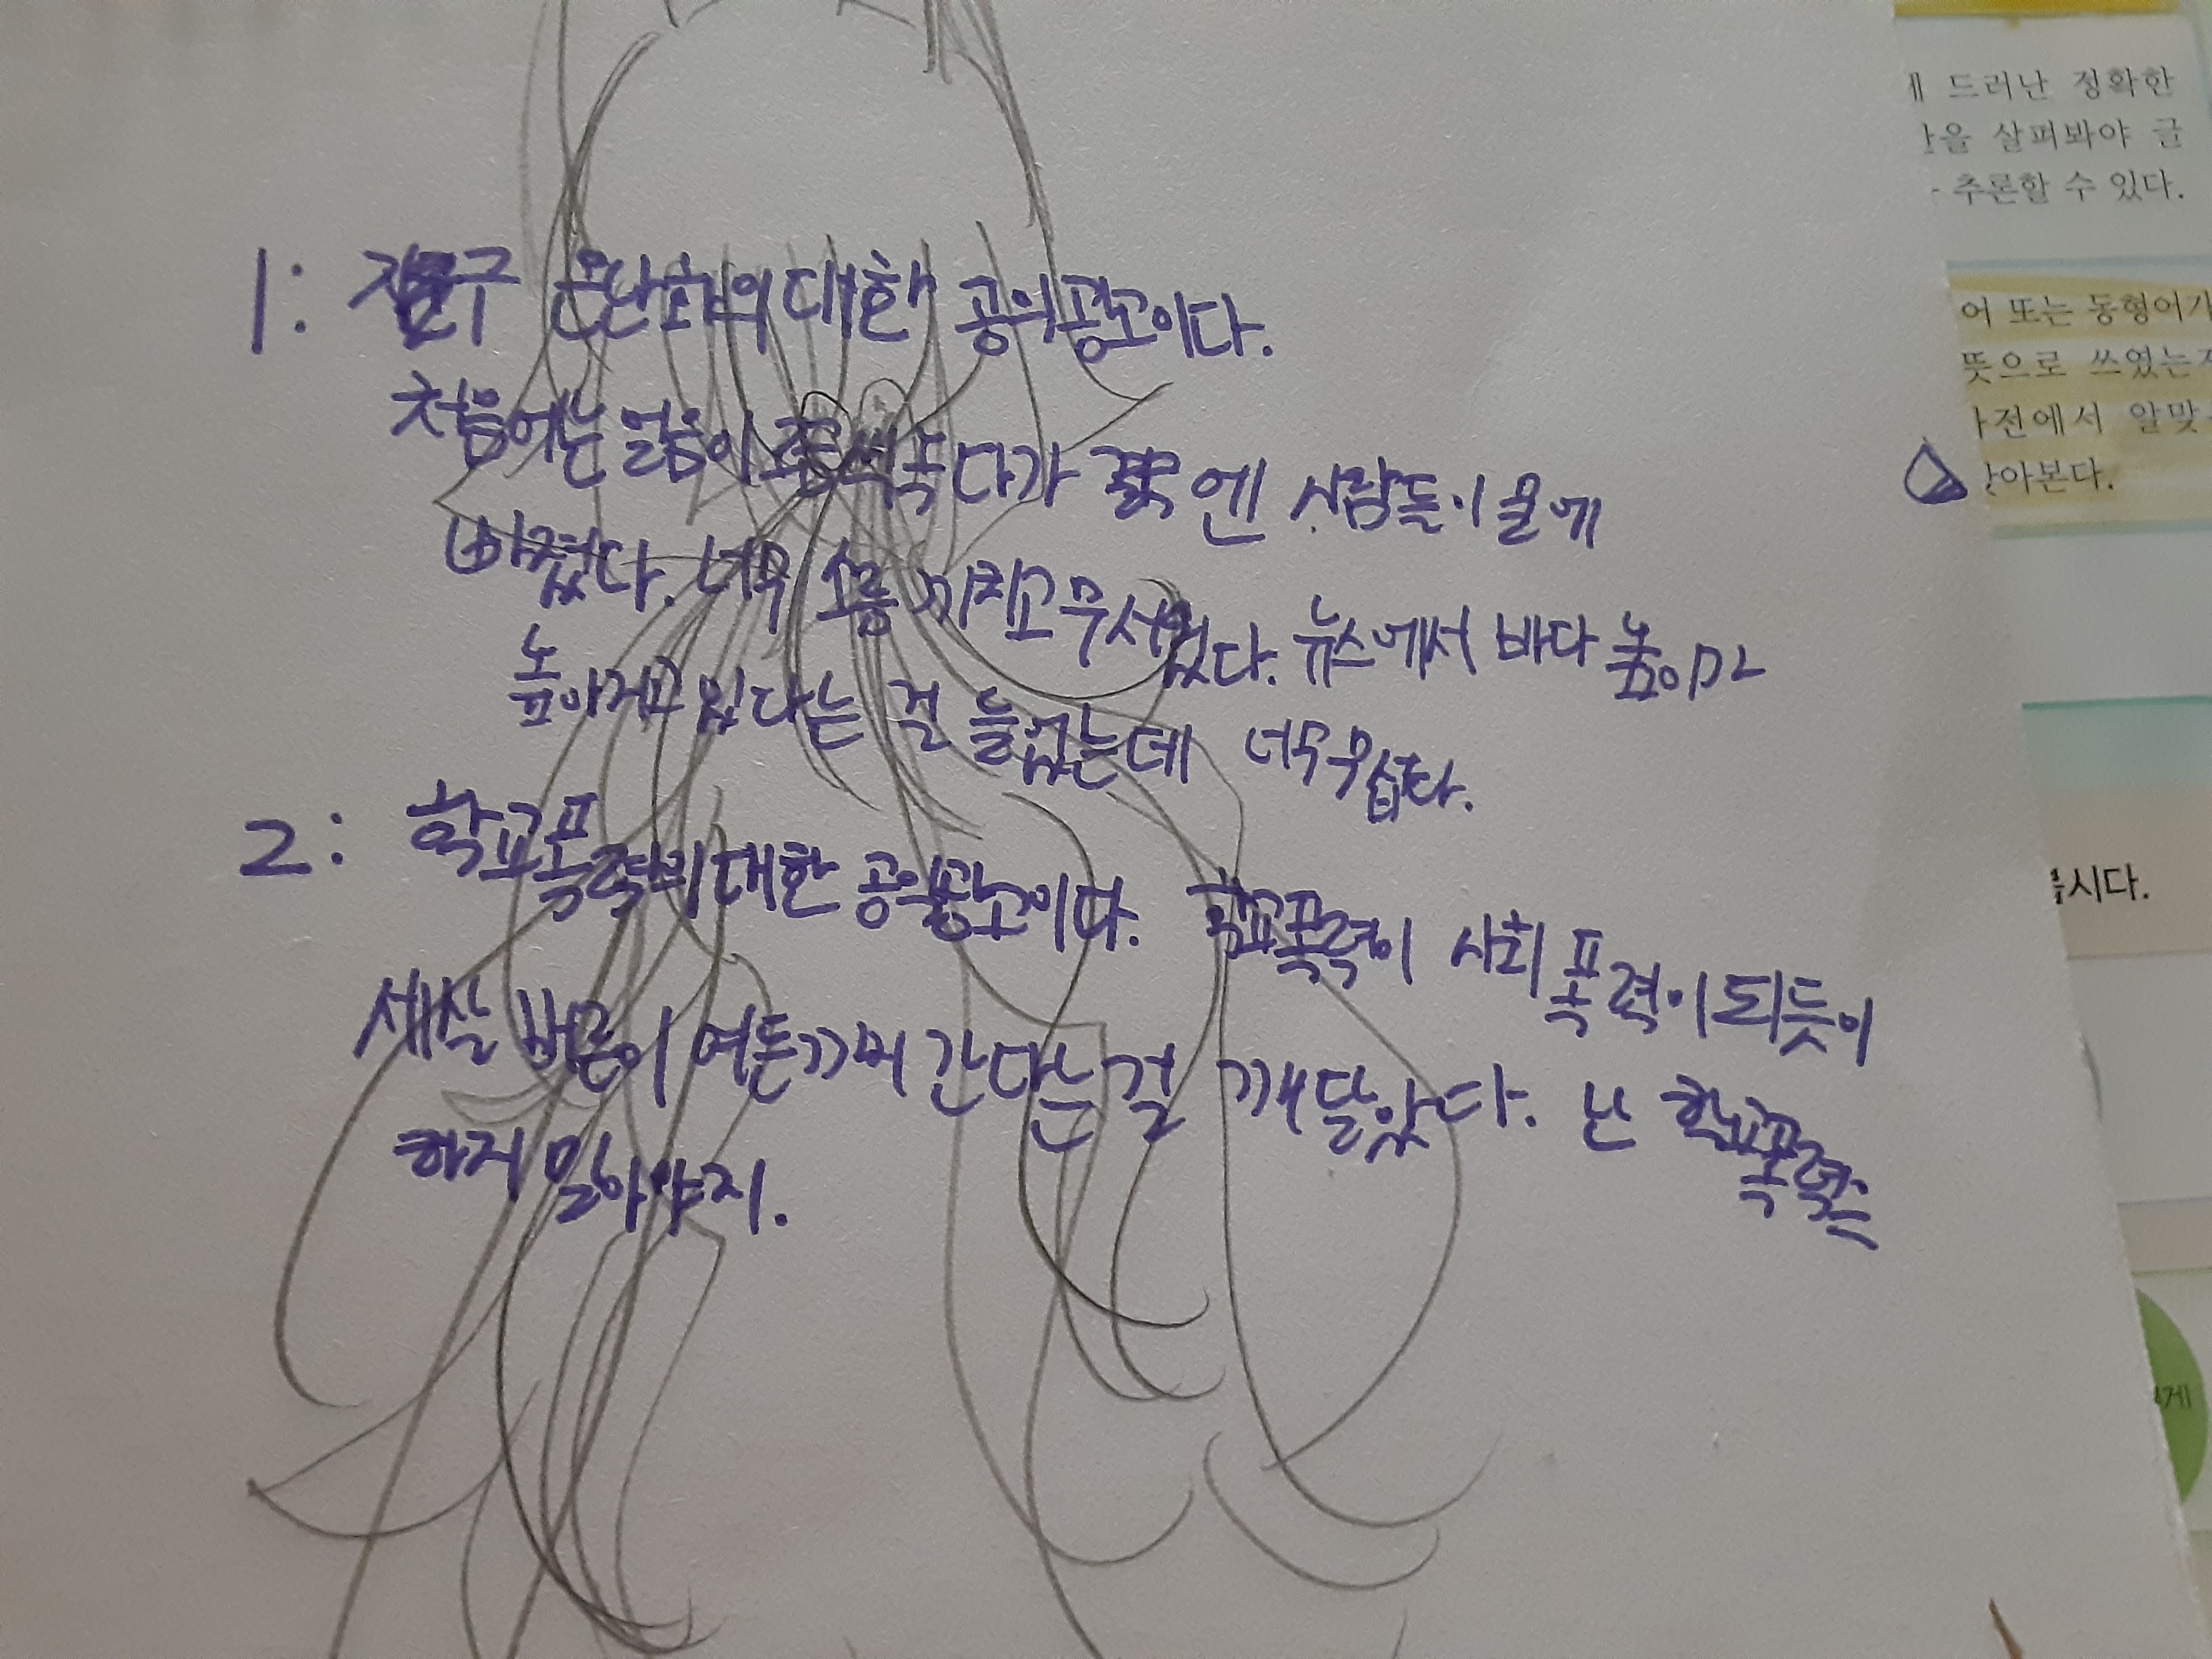 1: 지구 온난화의 대한 공의광고이다.
처음에는 얼음이 조금씩 녹다가 끝엔 사람들이 물에
빠졌다. 너무 소름 끼치고 무서웠다. 뉴스에서 바다 높이가
높아지고 있다는 걸 들었는데 너무 무섭다.
2: 학교폭력의 대한 공익광고이다. 학교폭력이 사회 폭력이 되듯이
세살 버릇이 여든까지 간다는 걸 깨달았다. 난 학교폭력은
하지 말아야지.
에 드러난 정확한
을 살펴봐야 글
추론할 수 있다.
어 또는 동형어가
뜻으로 쓰였는지
사전에서 알맞
찾아본다.
시다.